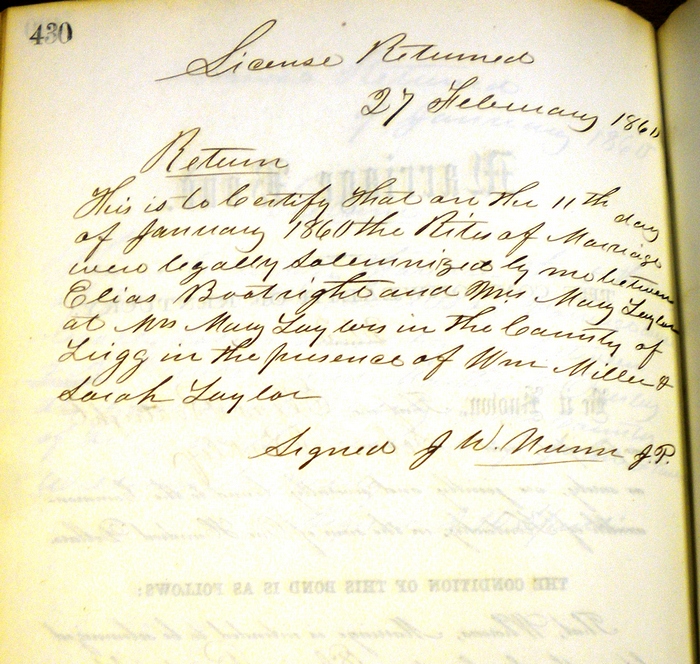 430
License Returned
27 February 1860
Return
This is to Certify that on the 11th day
of January 1860 the Rites of Marriage
were legally Solemnized by me between
Elias Boatright and Mrs Mary Taylor
at Mrs Mary Taylors in the County of
Trigg in the presence of Wm Miller &
Sarah Taylor
Signed J W. Nunn J.P.
Marriage Bond.
Be it Known,
THE CONDITION OF THIS BOND IS AS FOLLOWS: